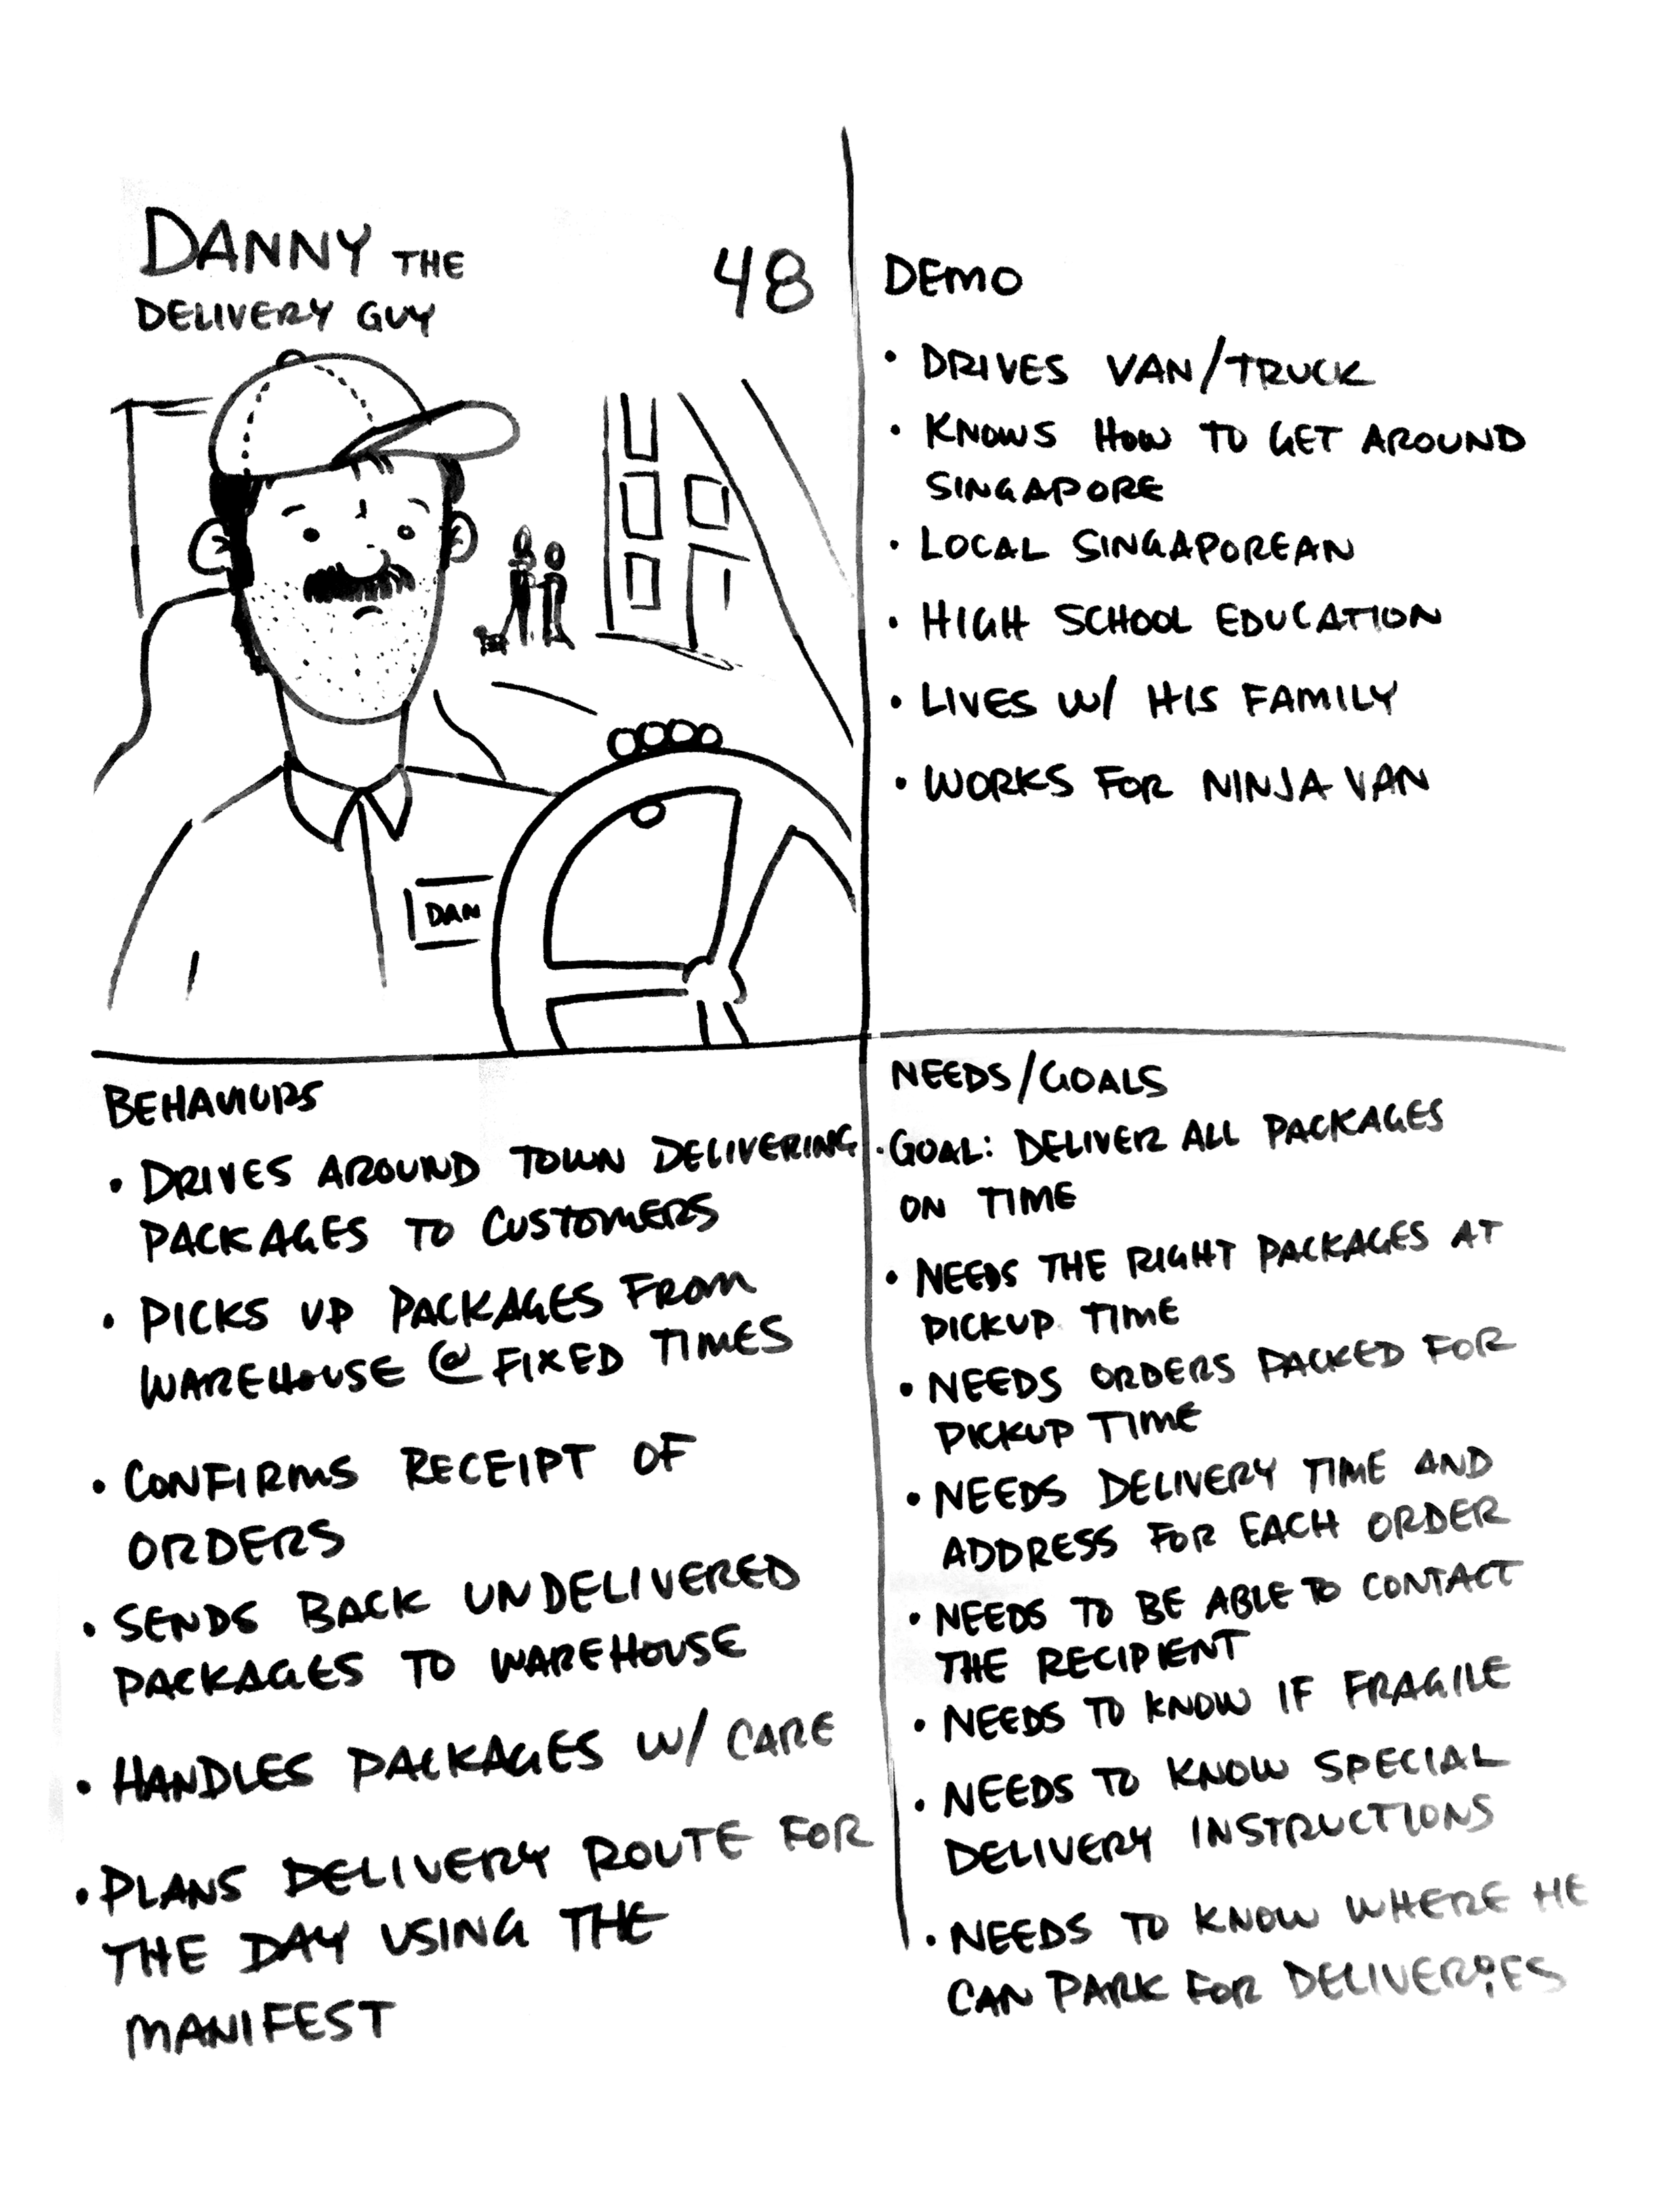 DANNY THE
DELIVERY GUY
48
DAN
DEMO
• DRIVES VAN/TRUCK
• KNOWS HOW TO GET AROUND
SINGAPORE
• LOCAL SINGAPOREAN
• HIGH SCHOOL EDUCATION
• LIVES W/ HIS FAMILY
• WORKS FOR NINJA VAN
BEHAVIURS
• DRIVES AROUND TOWN DELIVERING
PACKAGES TO CUSTOMERS
• PICKS UP PACKAGES FROM
WAREHOUSE @ FIXED TIMES
• CONFIRMS RECEIPT OF
ORDERS
• SENDS BACK UNDELIVERED
PACKAGES TO WAREHOUSE
• HANDLES PACKAGES W/ CARE
• PLANS DELIVERY ROUTE FOR
THE DAY USING THE
MANIFEST
NEEDS/GOALS
• GOAL: DELIVER ALL PACKAGES
ON TIME
• NEEDS THE RIGHT PACKAGES AT
PICKUP TIME
• NEEDS ORDERS PACKED FOR
PICKUP TIME
• NEEDS DELIVERY TIME AND
ADDRESS FOR EACH ORDER
• NEEDS TO BE ABLE TO CONTACT
THE RECIPIENT
• NEEDS TO KNOW IF FRAGILE
• NEEDS TO KNOW SPECIAL
DELIVERY INSTRUCTIONS
• NEEDS TO KNOW WHERE HE
CAN PARK FOR DELIVERIES